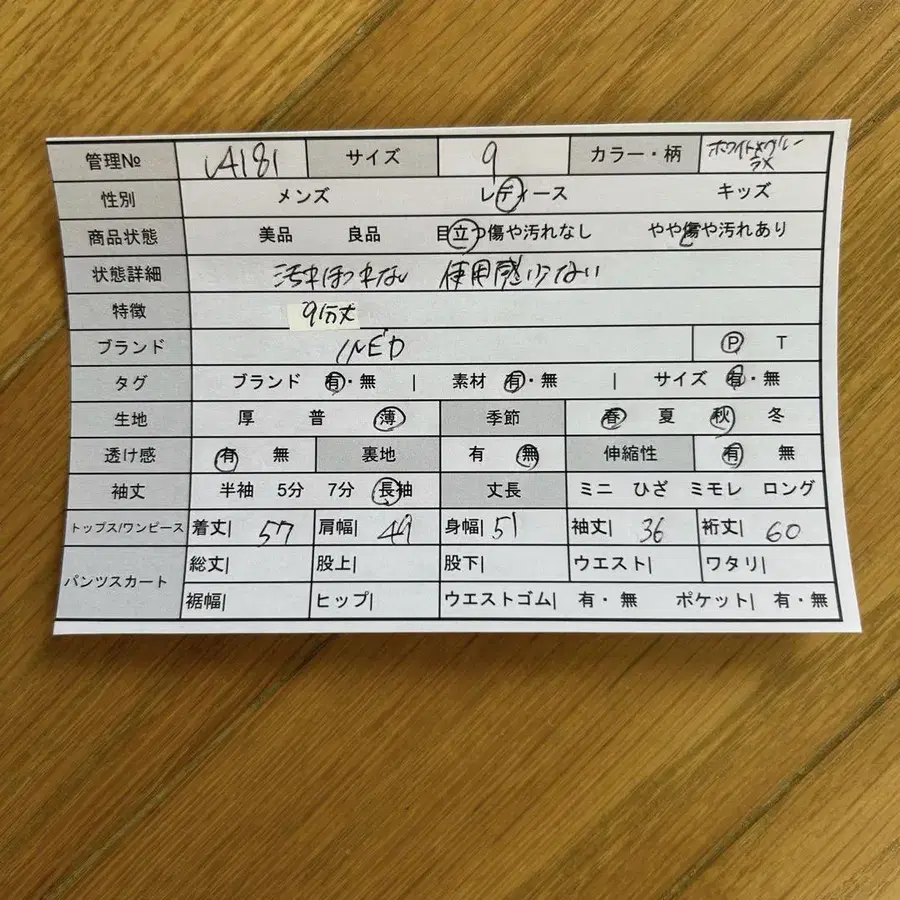 管理№ A181 サイズ 9 カラー・柄 ホワイト×グレー ラメ
性別 メンズ レディース キッズ
商品状態 美品 良品 目立つ傷や汚れなし やや傷や汚れあり
状態詳細 汚れほつれない 使用感少ない
特徴 9分丈
ブランド INED P T
タグ ブランド 有・無 | 素材 有・無 | サイズ 有・無
生地 厚 普 薄 季節 春 夏 秋 冬
透け感 有 無 裏地 有 無 伸縮性 有 無
袖丈 半袖 5分 7分 長袖 丈長 ミニ ひざ ミモレ ロング
トップス/ワンピース 着丈| 57 肩幅| 49 身幅| 51 袖丈| 36 裄丈| 60
パンツスカート 総丈| 股上| 股下| ウエスト| ワタリ|
裾幅| ヒップ| ウエストゴム| 有・無 ポケット| 有・無